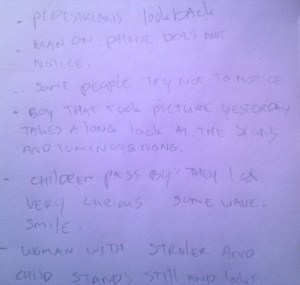 - PEDESTRIANS look BACK
- MAN ON PHONE DOES NOT
NOTICE.
- SOME PEOPLE TRY NOT TO NOTICE
- BOY THAT TOOK PICTURE YESTERDAY
TAKES A LONG look AT THE SIGNS
AND
- CHILDREN PASS BY THEY
VERY CURIOUS SOME WAVE.
SMILE.
- WOMAN WITH STROLER AND
CHILD STANDS STILL AND looks